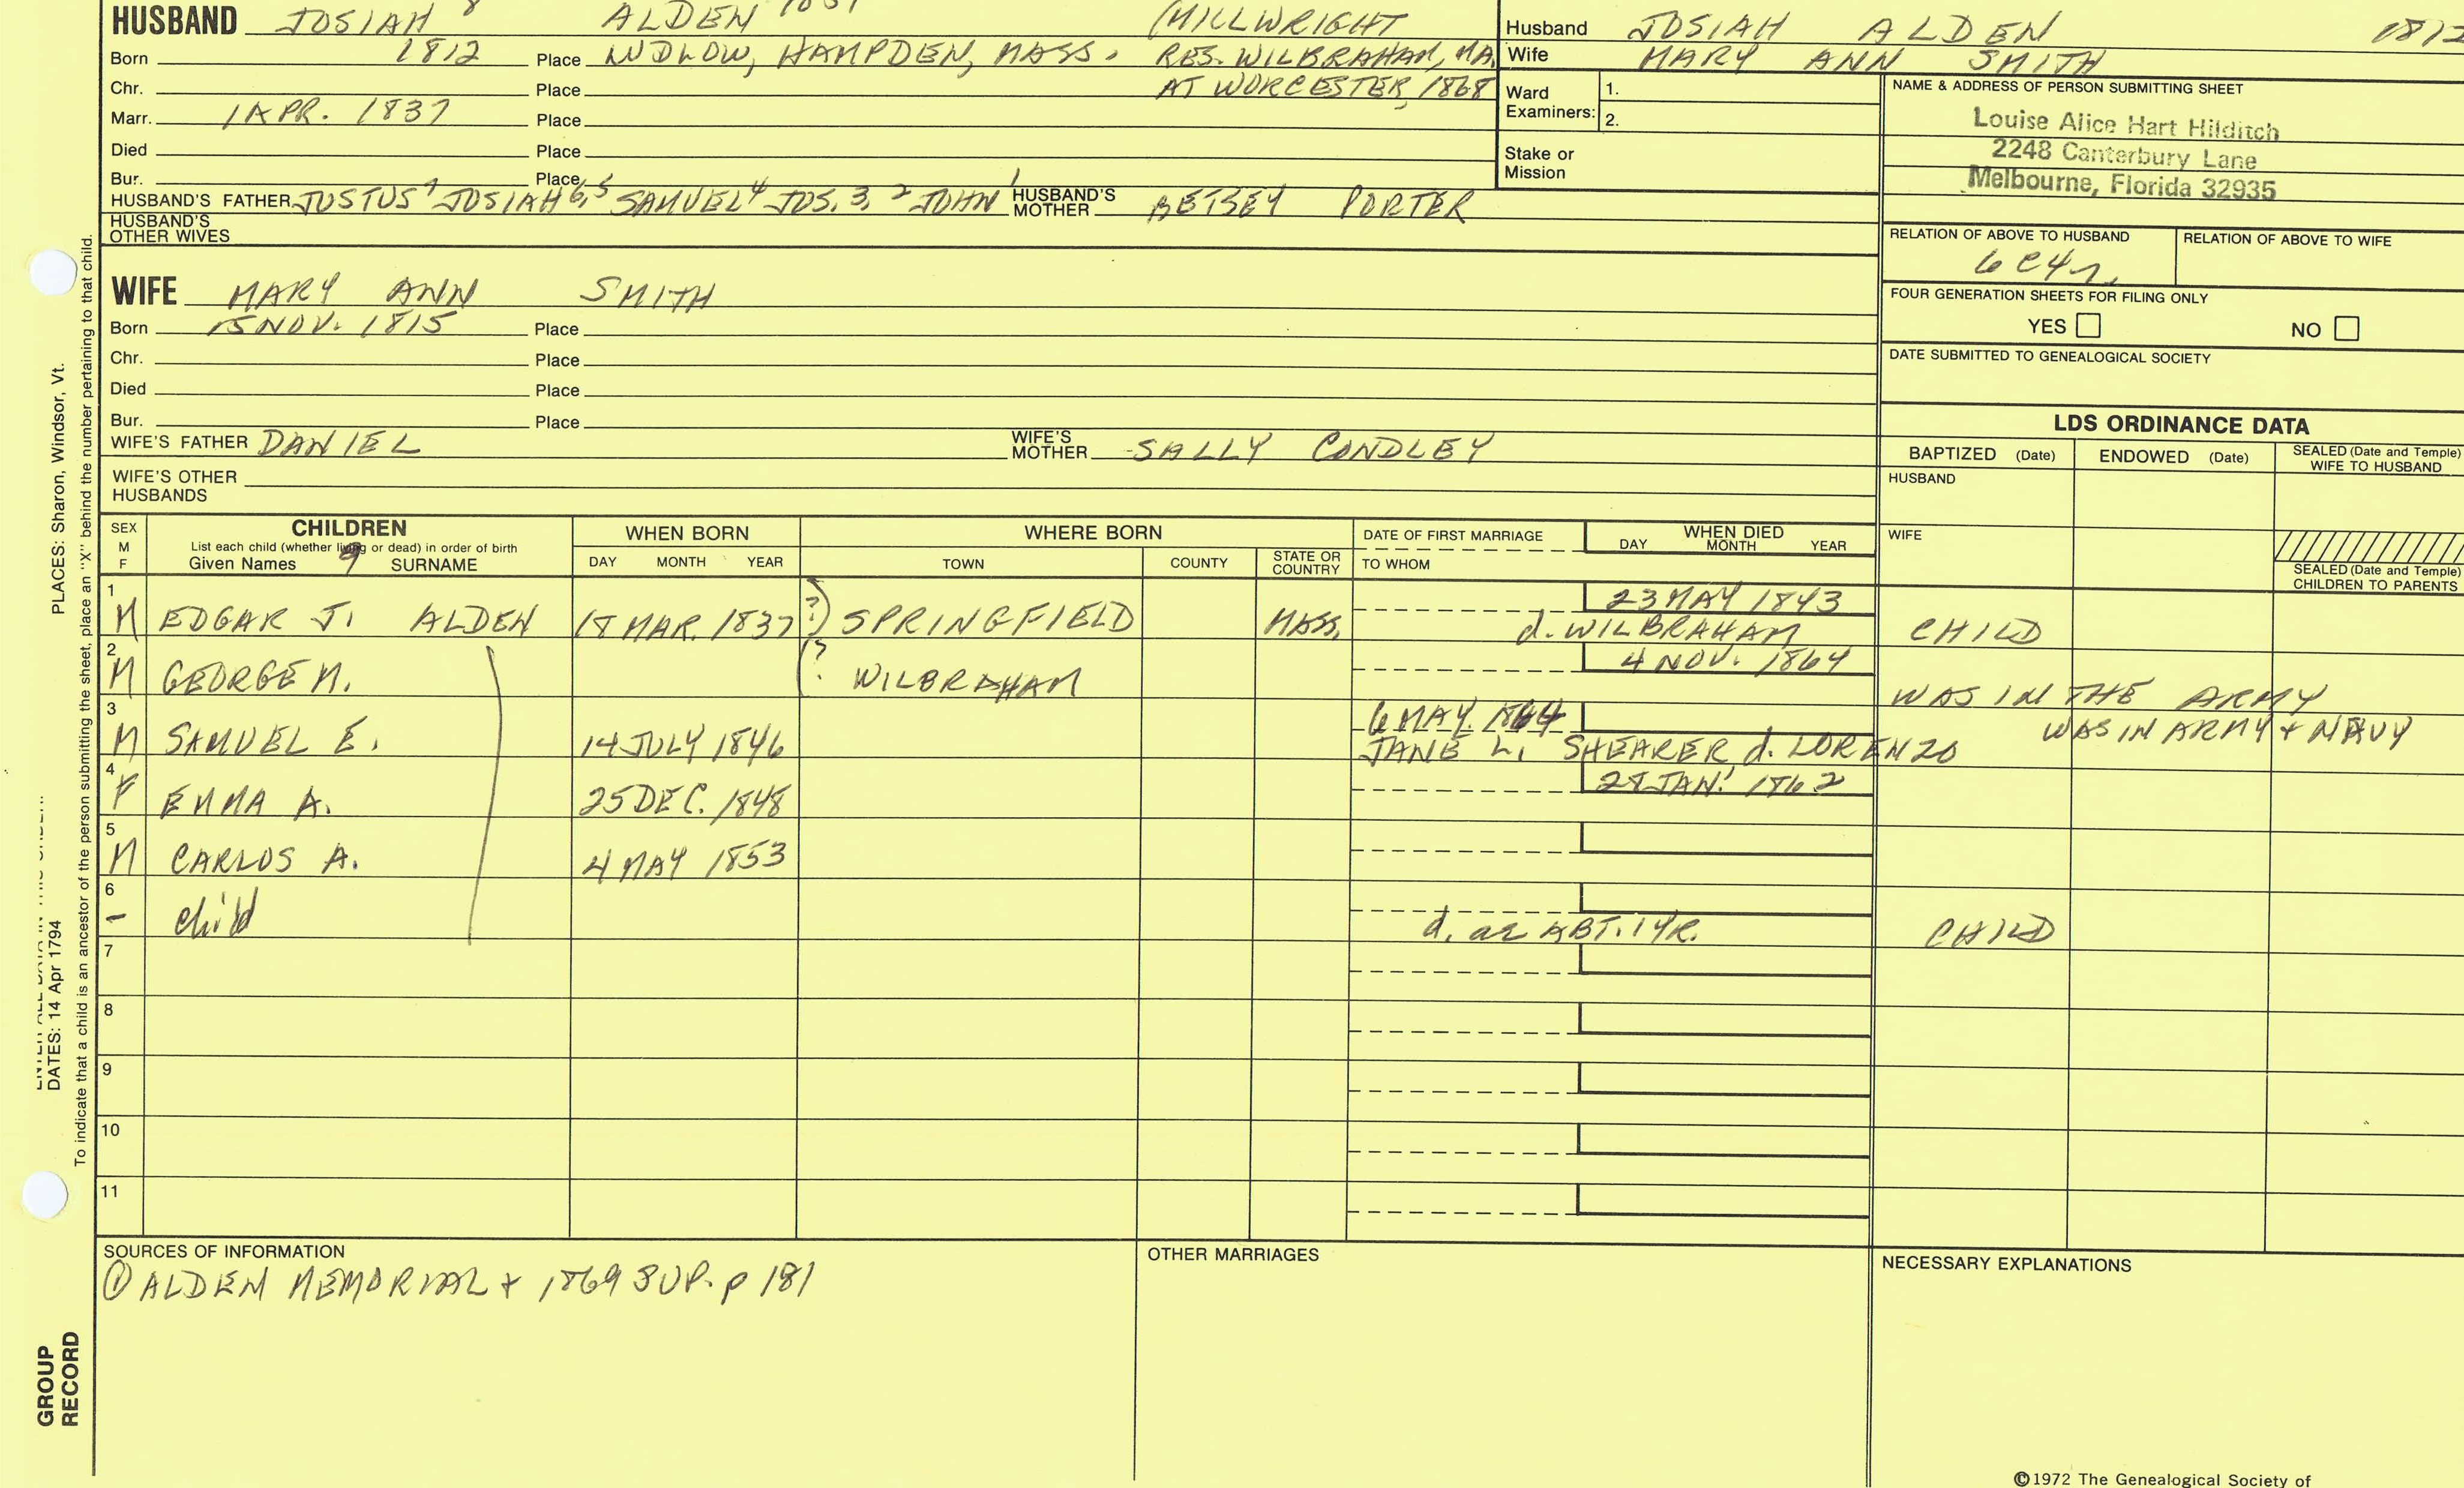 HUSBAND JOSIAH 8 ALDEN (MILLWRIGHT
Born 1812 Place LUDLOW, HAMPDEN, MASS. RES. WILBRAHAM, MA.
Chr. Place AT WORCESTER, 1868
Marr. 1 APR. 1837 Place
Died Place
Bur. Place
HUSBAND'S FATHER JUSTUS 7 JOSIAH 6,5 SAMUEL 4 JOS. 3, 2 JOHN 1 HUSBAND'S MOTHER BETSEY PORTER
HUSBAND'S OTHER WIVES
Husband JOSIAH ALDEN 1812
Wife MARY ANN SMITH
Ward Examiners: 1.
2.
Stake or Mission
NAME & ADDRESS OF PERSON SUBMITTING SHEET
Louise Alice Hart Hilditch
2248 Canterbury Lane
Melbourne, Florida 32935
RELATION OF ABOVE TO HUSBAND RELATION OF ABOVE TO WIFE
6C4r.
FOUR GENERATION SHEETS FOR FILING ONLY
YES NO
DATE SUBMITTED TO GENEALOGICAL SOCIETY
WIFE MARY ANN SMITH
Born 15 NOV. 1815 Place
Chr. Place
Died Place
Bur. Place
WIFE'S FATHER DANIEL WIFE'S MOTHER SALLY CONDLEY
WIFE'S OTHER HUSBANDS
LDS ORDINANCE DATA
BAPTIZED (Date) ENDOWED (Date) SEALED (Date and Temple) WIFE TO HUSBAND
HUSBAND
WIFE
SEALED (Date and Temple) CHILDREN TO PARENTS
SEX M F CHILDREN WHEN BORN WHERE BORN DATE OF FIRST MARRIAGE WHEN DIED
List each child (whether living or dead) in order of birth
Given Names SURNAME DAY MONTH YEAR TOWN COUNTY STATE OR COUNTRY TO WHOM DAY MONTH YEAR
9
1 23 MAY 1843
M EDGAR J. ALDEN 18 MAR. 1837 ?) SPRINGFIELD MASS. d. WILBRAHAM CHILD
2 4 NOV. 1864
M GEORGE N. (? WILBRAHAM WAS IN THE ARMY
3 6 MAY. 1864
M SAMUEL E. 14 JULY 1846 JANE L. SHEARER d. LORENZO WAS IN ARMY & NAVY
4 28 JAN. 1862
F EMMA A. 25 DEC. 1848
5
M CARLOS A. 4 MAY 1853
6
- child d. ae ABT. 1 YR. CHILD
7
8
9
10
11
SOURCES OF INFORMATION
① ALDEN MEMORIAL & 1869 SUP. p 181
OTHER MARRIAGES
NECESSARY EXPLANATIONS
©1972 The Genealogical Society of
PLACES: Sharon, Windsor, Vt.
DATES: 14 Apr 1794
To indicate that a child is an ancestor of the person submitting the sheet, place an "X" behind the number pertaining to that child.
GROUP
RECORD